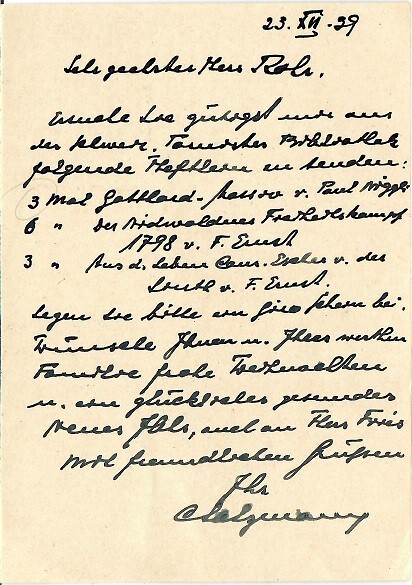 23. XII. 39
Sehr geehrter Herr Rohr.
Ersuche Sie gütigst mir aus
der schweiz. Tornister Bibliothek
folgende Heftlein zu senden:
3 Mal Gotthard- v. Paul Niggli
6 " Der Nidwaldner Freiheitskampf
1798 v. F. Ernst
3 " Aus d. Leben Conr. Escher v. der
Linth v. F. Ernst.
Legen Sie bitte ein Giro schein bei.
Wünsche Ihnen u. Ihrer werthen
Familie frohe Weihnachten
u. ein glückliches gesundes
Neues Jahr, auch an Herr
Mit freundlichen Grüssen
Ihr